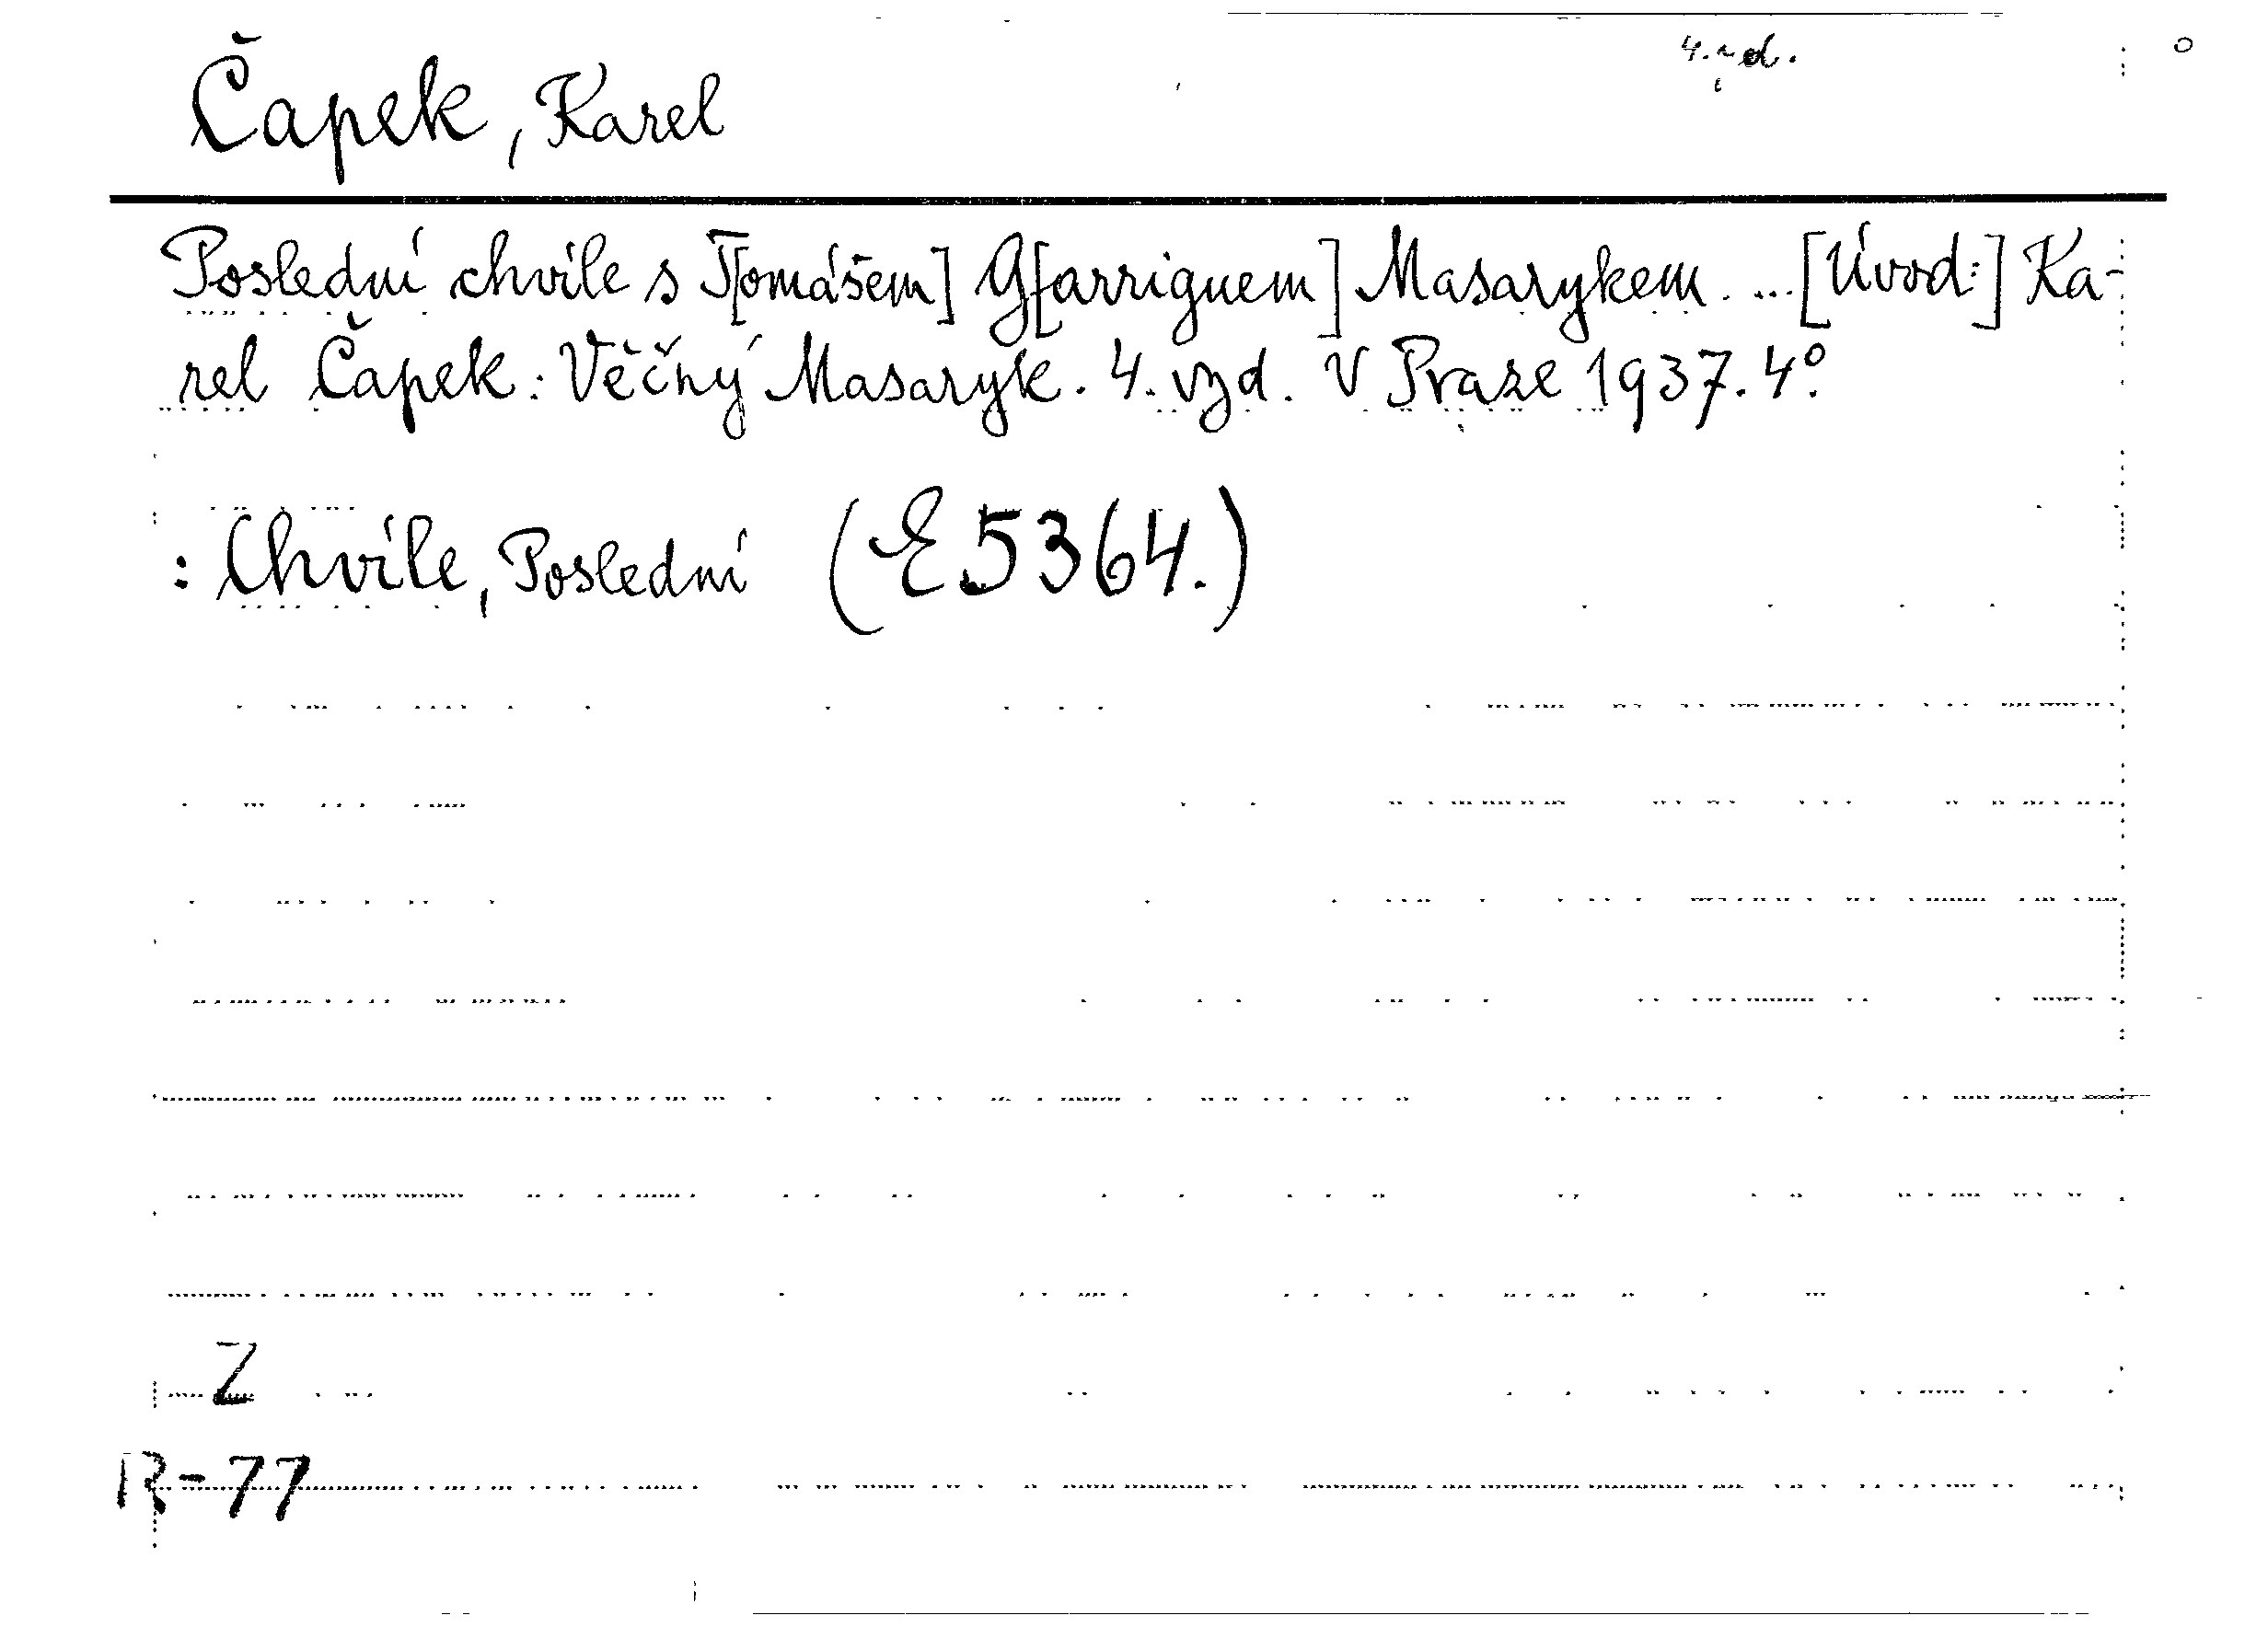 4. vyd.
Čapek, Karel
Poslední chvíle s T[omášem] G[arriguem] Masarykem. ... [Úvod:] Ka-
rel Čapek: Věčný Masaryk. 4. vyd. V Praze 1937. 4°.
: Chvíle, Poslední (E 5364.)
Z
R-77